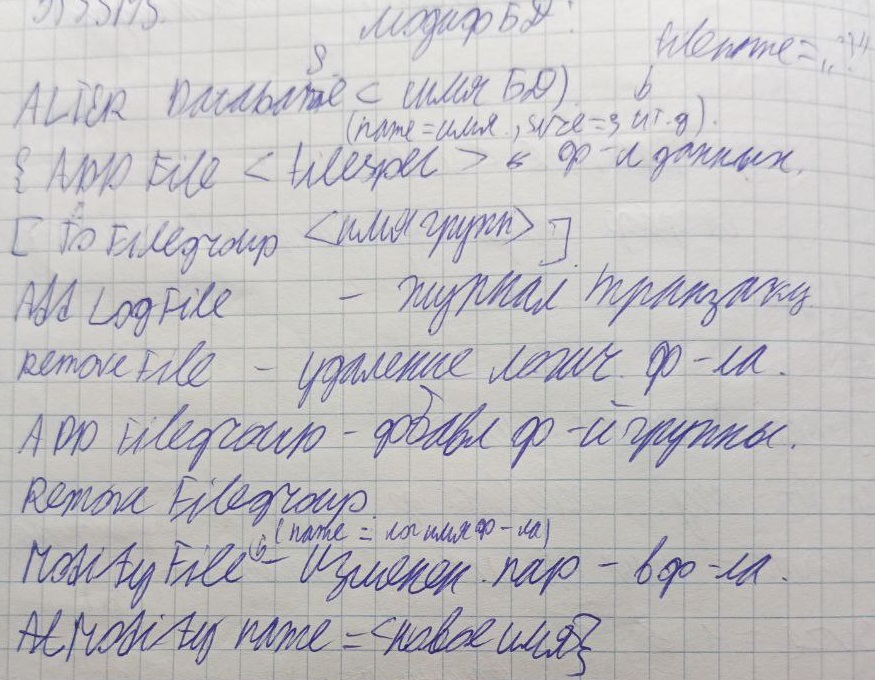 Модиф БД:
filename = „
ALTER Database < имя БД)
(name = имя., size = 3 и т.д).
{ ADD File <filespec> ф-л данных.
[To Filegroup <имя групп>]
Add LogFile – журнал транзакц
Remove File – удаление логич. ф-ла.
ADD Filegroup – добавл ф-й группы.
Remove Filegroup.
(name = лог имя ф-ла)
Modify File – Изменен. пар-в ф-ла.
Modify name = <новое имя>}